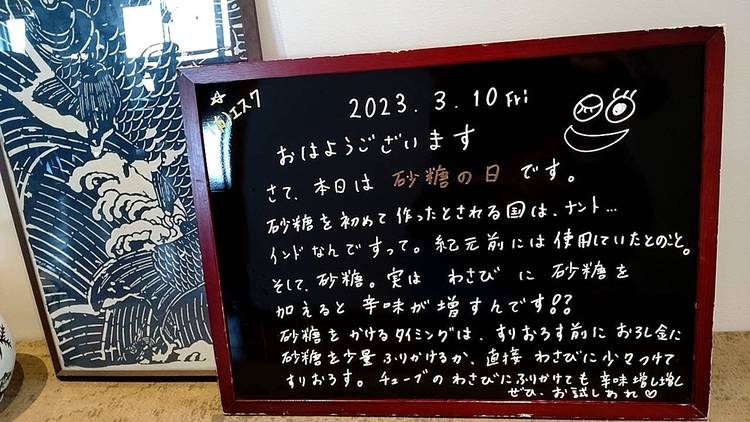 ☆
(株)エスワ
2023. 3. 10 Fri
おはようございます
さて、本日は 砂糖の日 です。
砂糖を初めて作ったとされる国は、ナント…
インドなんですって。紀元前には使用していたとのこと。
そして、砂糖。実は わさび に 砂糖を
加えると 辛味が 増すんです!?
砂糖をかけるタイミングは、すりおろす前に おろし金に
砂糖を少量 ふりかけるか、直接 わさびに少々つけて
すりおろす。チューブの わさびにふりかけても 辛味 増し増し
ぜひ、お試しあれ♡